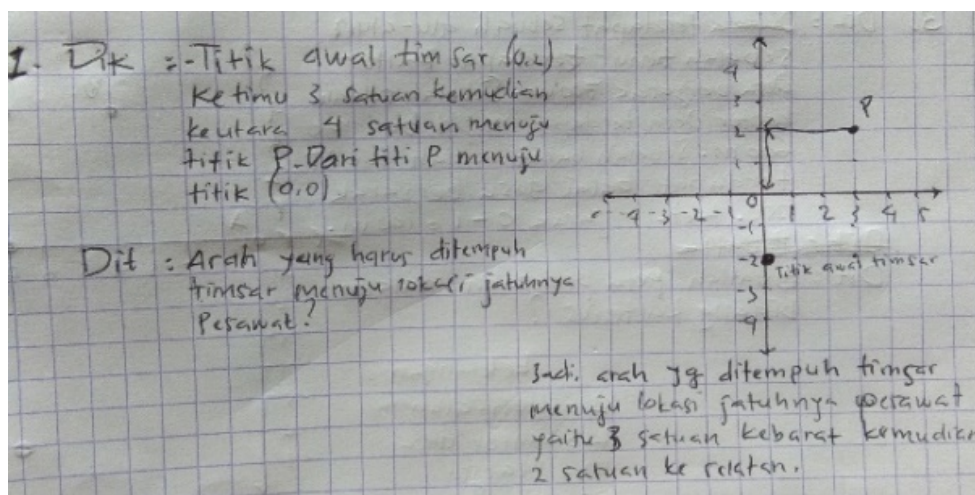 1. Dik :- Titik awal tim sar (0.2)
Ke timu 3 satuan kemudian
ke utara 4 satuan menuju
titik P. Dari titi P menuju
titik (0,0)
Dit : Arah yang harus ditempuh
timsar menuju lokasi jatuhnya
Pesawat?
4
3
2
1
P
-4 -3 -2 -1 0 1 2 3 4 5
-1
-2 Titik awal timsar
-3
-4
Jadi. arah yg ditempuh timsar
menuju lokasi jatuhnya pesawat
yaitu 3 satuan kebarat kemudian
2 satuan ke selatan.